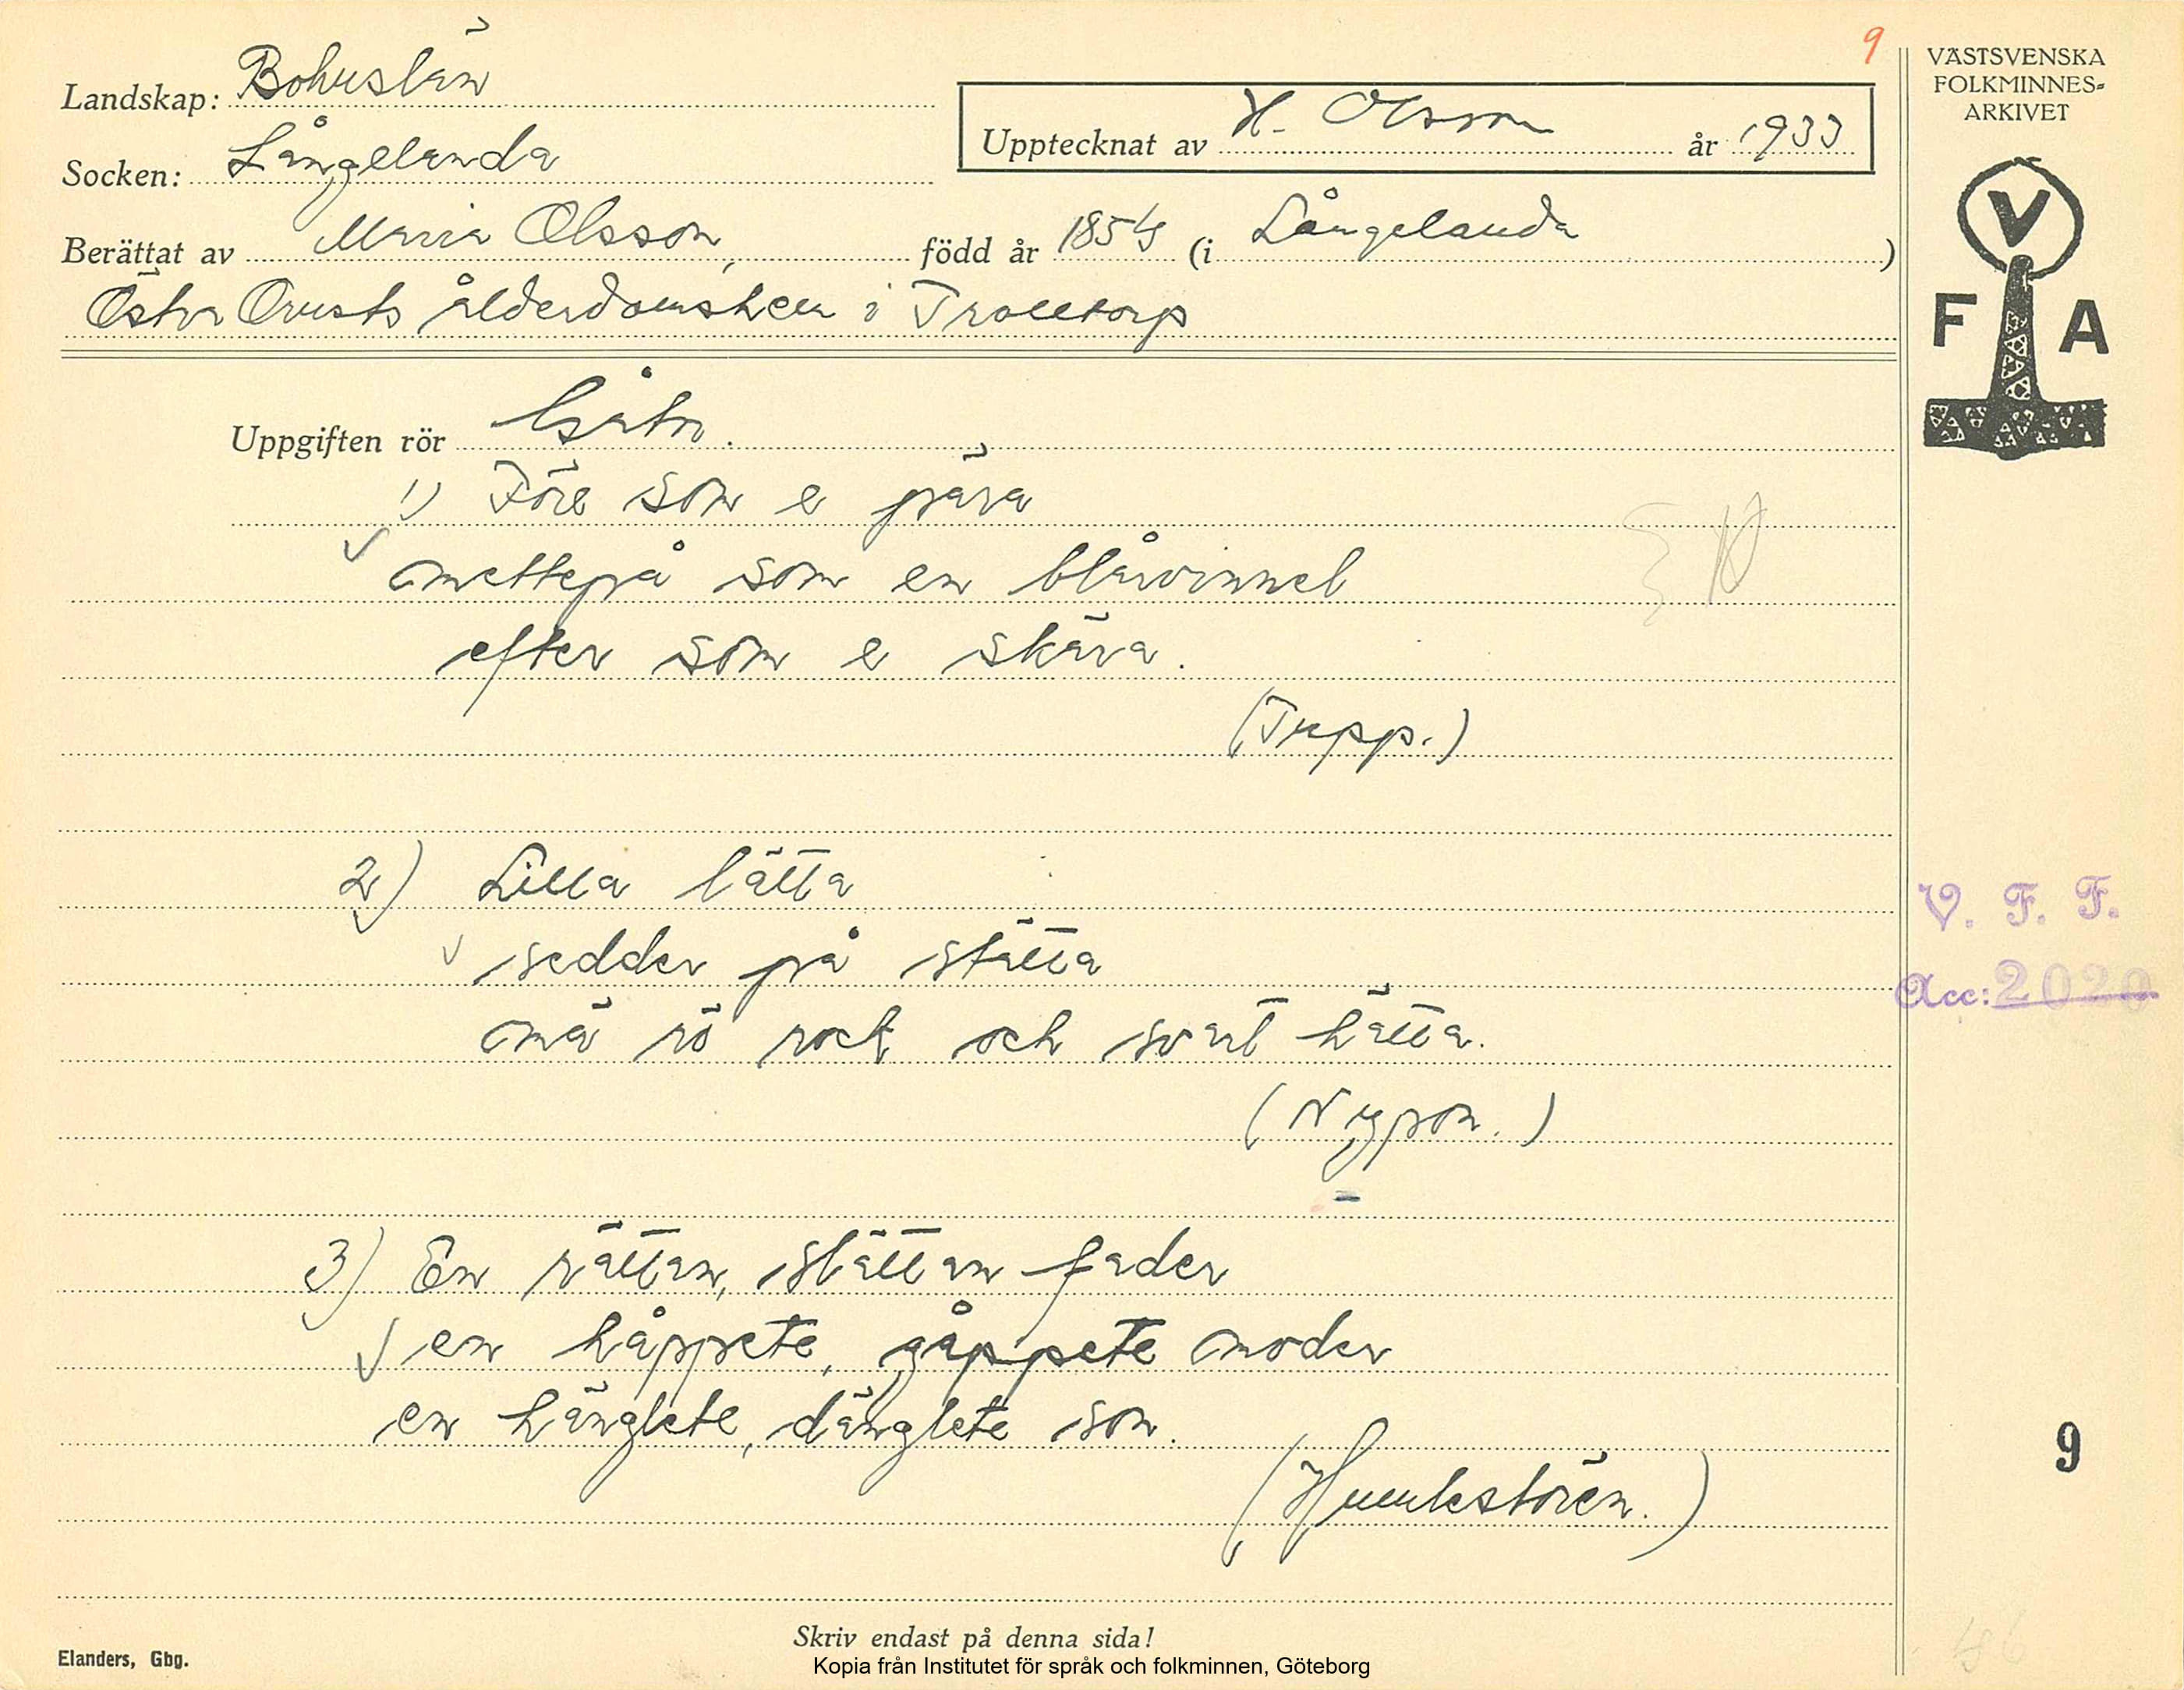 9
VÄSTSVENSKA
FOLKMINNES=
ARKIVET
Landskap: Bohuslän
Upptecknat av H. Olsson år 1933
Socken: Långelanda
Berättat av Maria Olsson, född år 1854 (i Långelanda)
Östra Orusts ålderdomshem i Trolltorp
V
F A
Uppgiften rör Gåtor.
1) Före som e pära
mettepå som en blåvinnel
efter som e skära.
(Tupp.)
2) Lilla lätta
sedder på stätta
mä rö rock och svart hätta.
(Nypon.)
V. F. F.
Acc: 2020
3) En rättan, slättan fader
en håppete, gåppete moder
en hänglete, dänglete son.
(Humlestören.)
9
Skriv endast på denna sida!
Elanders, Gbg.
Kopia från Institutet för språk och folkminnen, Göteborg